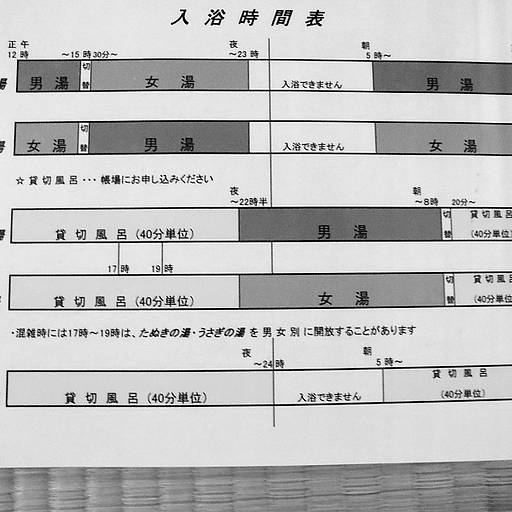 入浴時間表
正午 夜 朝
12時 ～15時30分～ ～23時 5時～
湯 男湯 切替 女湯 入浴できません 男湯
女湯 切替 男湯 入浴できません 女湯
☆貸切風呂・・・帳場にお申し込みください
夜 朝
～22時半 ～8時 20分～
貸切風呂(40分単位) 男湯 切替 貸切風呂(40分単位)
17時 19時
貸切風呂(40分単位) 女湯 切替 貸切風呂(40分単位)
・混雑時には17時～19時は、たぬきの湯・うさぎの湯を男女別に開放することがあります
夜 朝
～24時 5時～
貸切風呂(40分単位) 入浴できません 貸切風呂(40分単位)